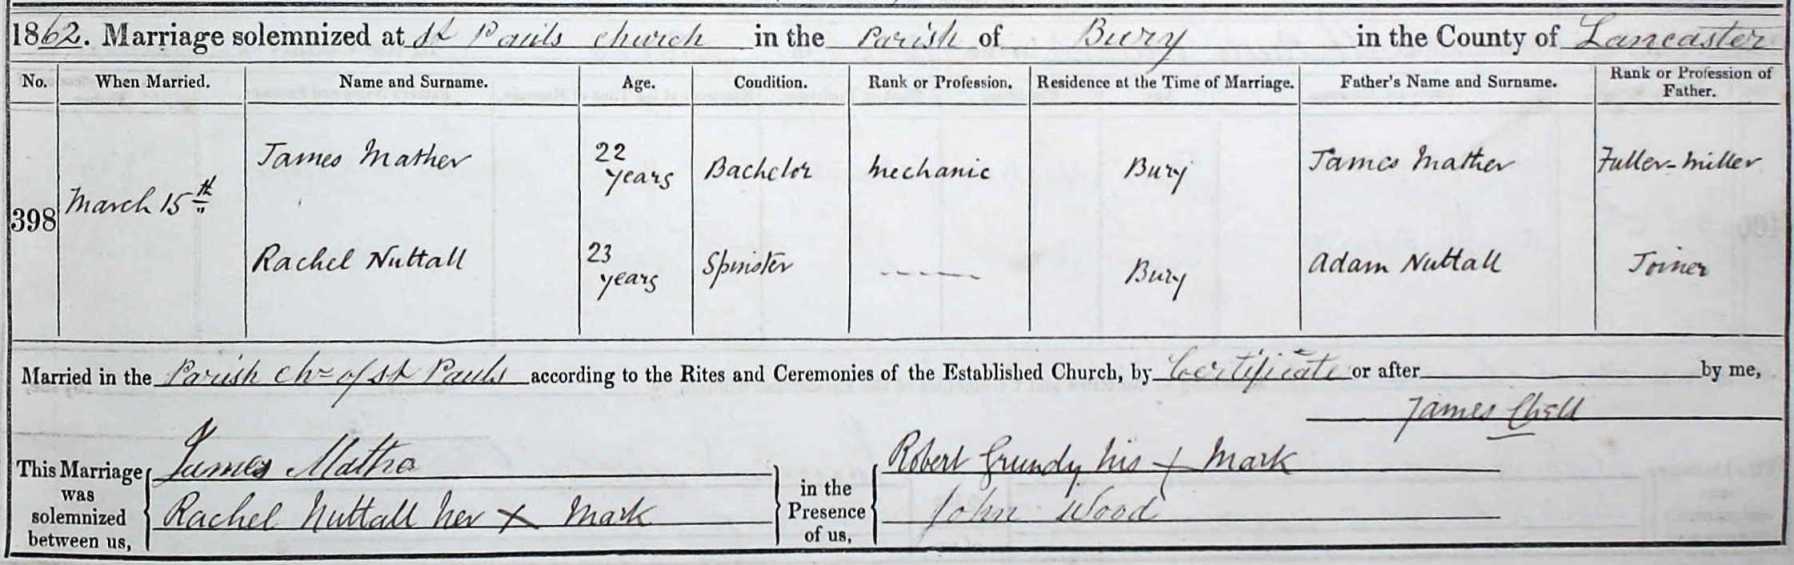 1862. Marriage solemnized at St Pauls church in the Parish of Bury in the County of Lancaster
No. When Married. Name and Surname. Age. Condition. Rank or Profession. Residence at the Time of Marriage. Father's Name and Surname. Rank or Profession of Father.
James Mather 22 years Bachelor Mechanic Bury James Mather Fuller-Miller
398 March 15th
Rachel Nuttall 23 years Spinster Bury Adam Nuttall Joiner
Married in the Parish Ch of St Pauls according to the Rites and Ceremonies of the Established Church, by Certificate or after by me,
James Chell
This Marriage was solemnized between us, James Mather in the Presence of us, Robert Grundy his X Mark
Rachel Nuttall her X Mark John Wood